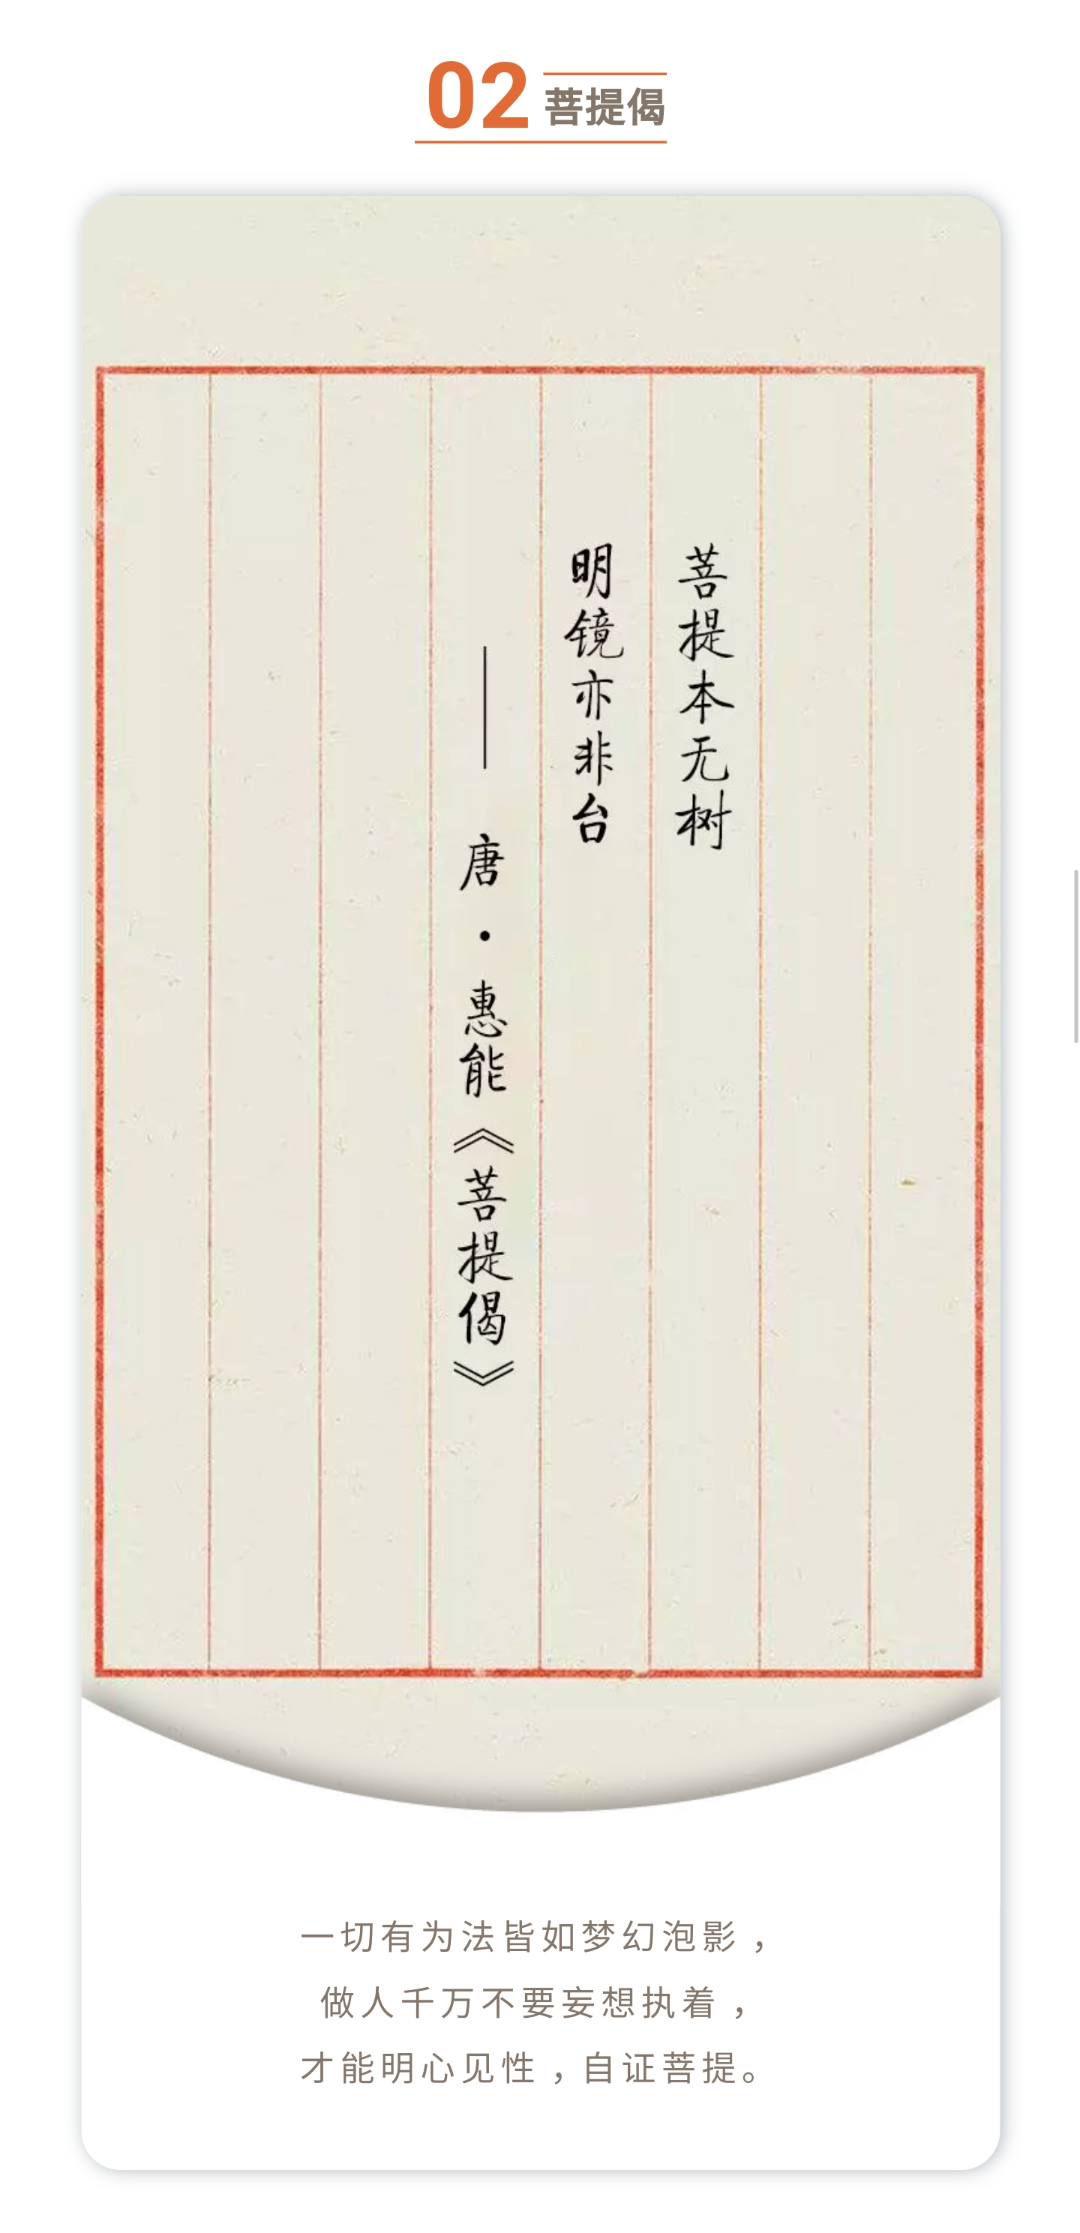 02 菩提偈
菩提本无树
明镜亦非台
—— 唐·惠能《菩提偈》
一切有为法皆如梦幻泡影，
做人千万不要妄想执着，
才能明心见性，自证菩提。